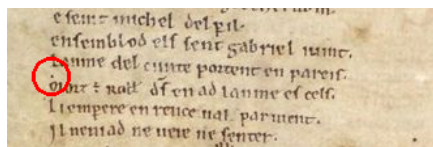 e seint michel del pil.
ensemblod els sent gabriel iuint.
Lanme del cunte portent en pareis.
Morz ÷ Roll ds en ad lanme es cels.
Li empere en rence ual paruient.
Il nen iad ne ueie ne senter.